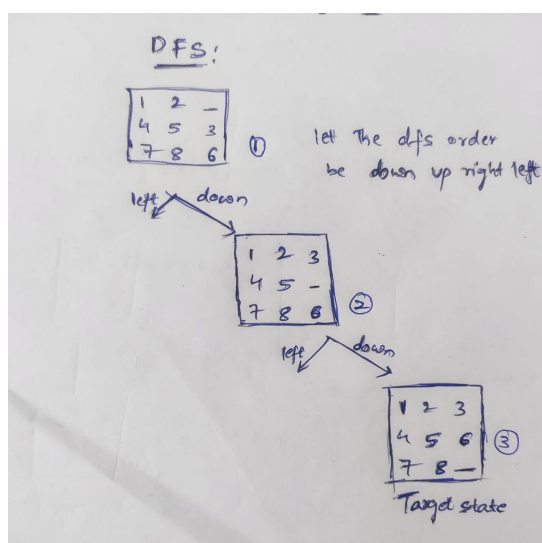 DFS:
1 2 _
4 5 3
7 8 6
①
let the dfs order
be down up right left
left down
1 2 3
4 5 _
7 8 6
②
left down
1 2 3
4 5 6
7 8 _
③
Target state